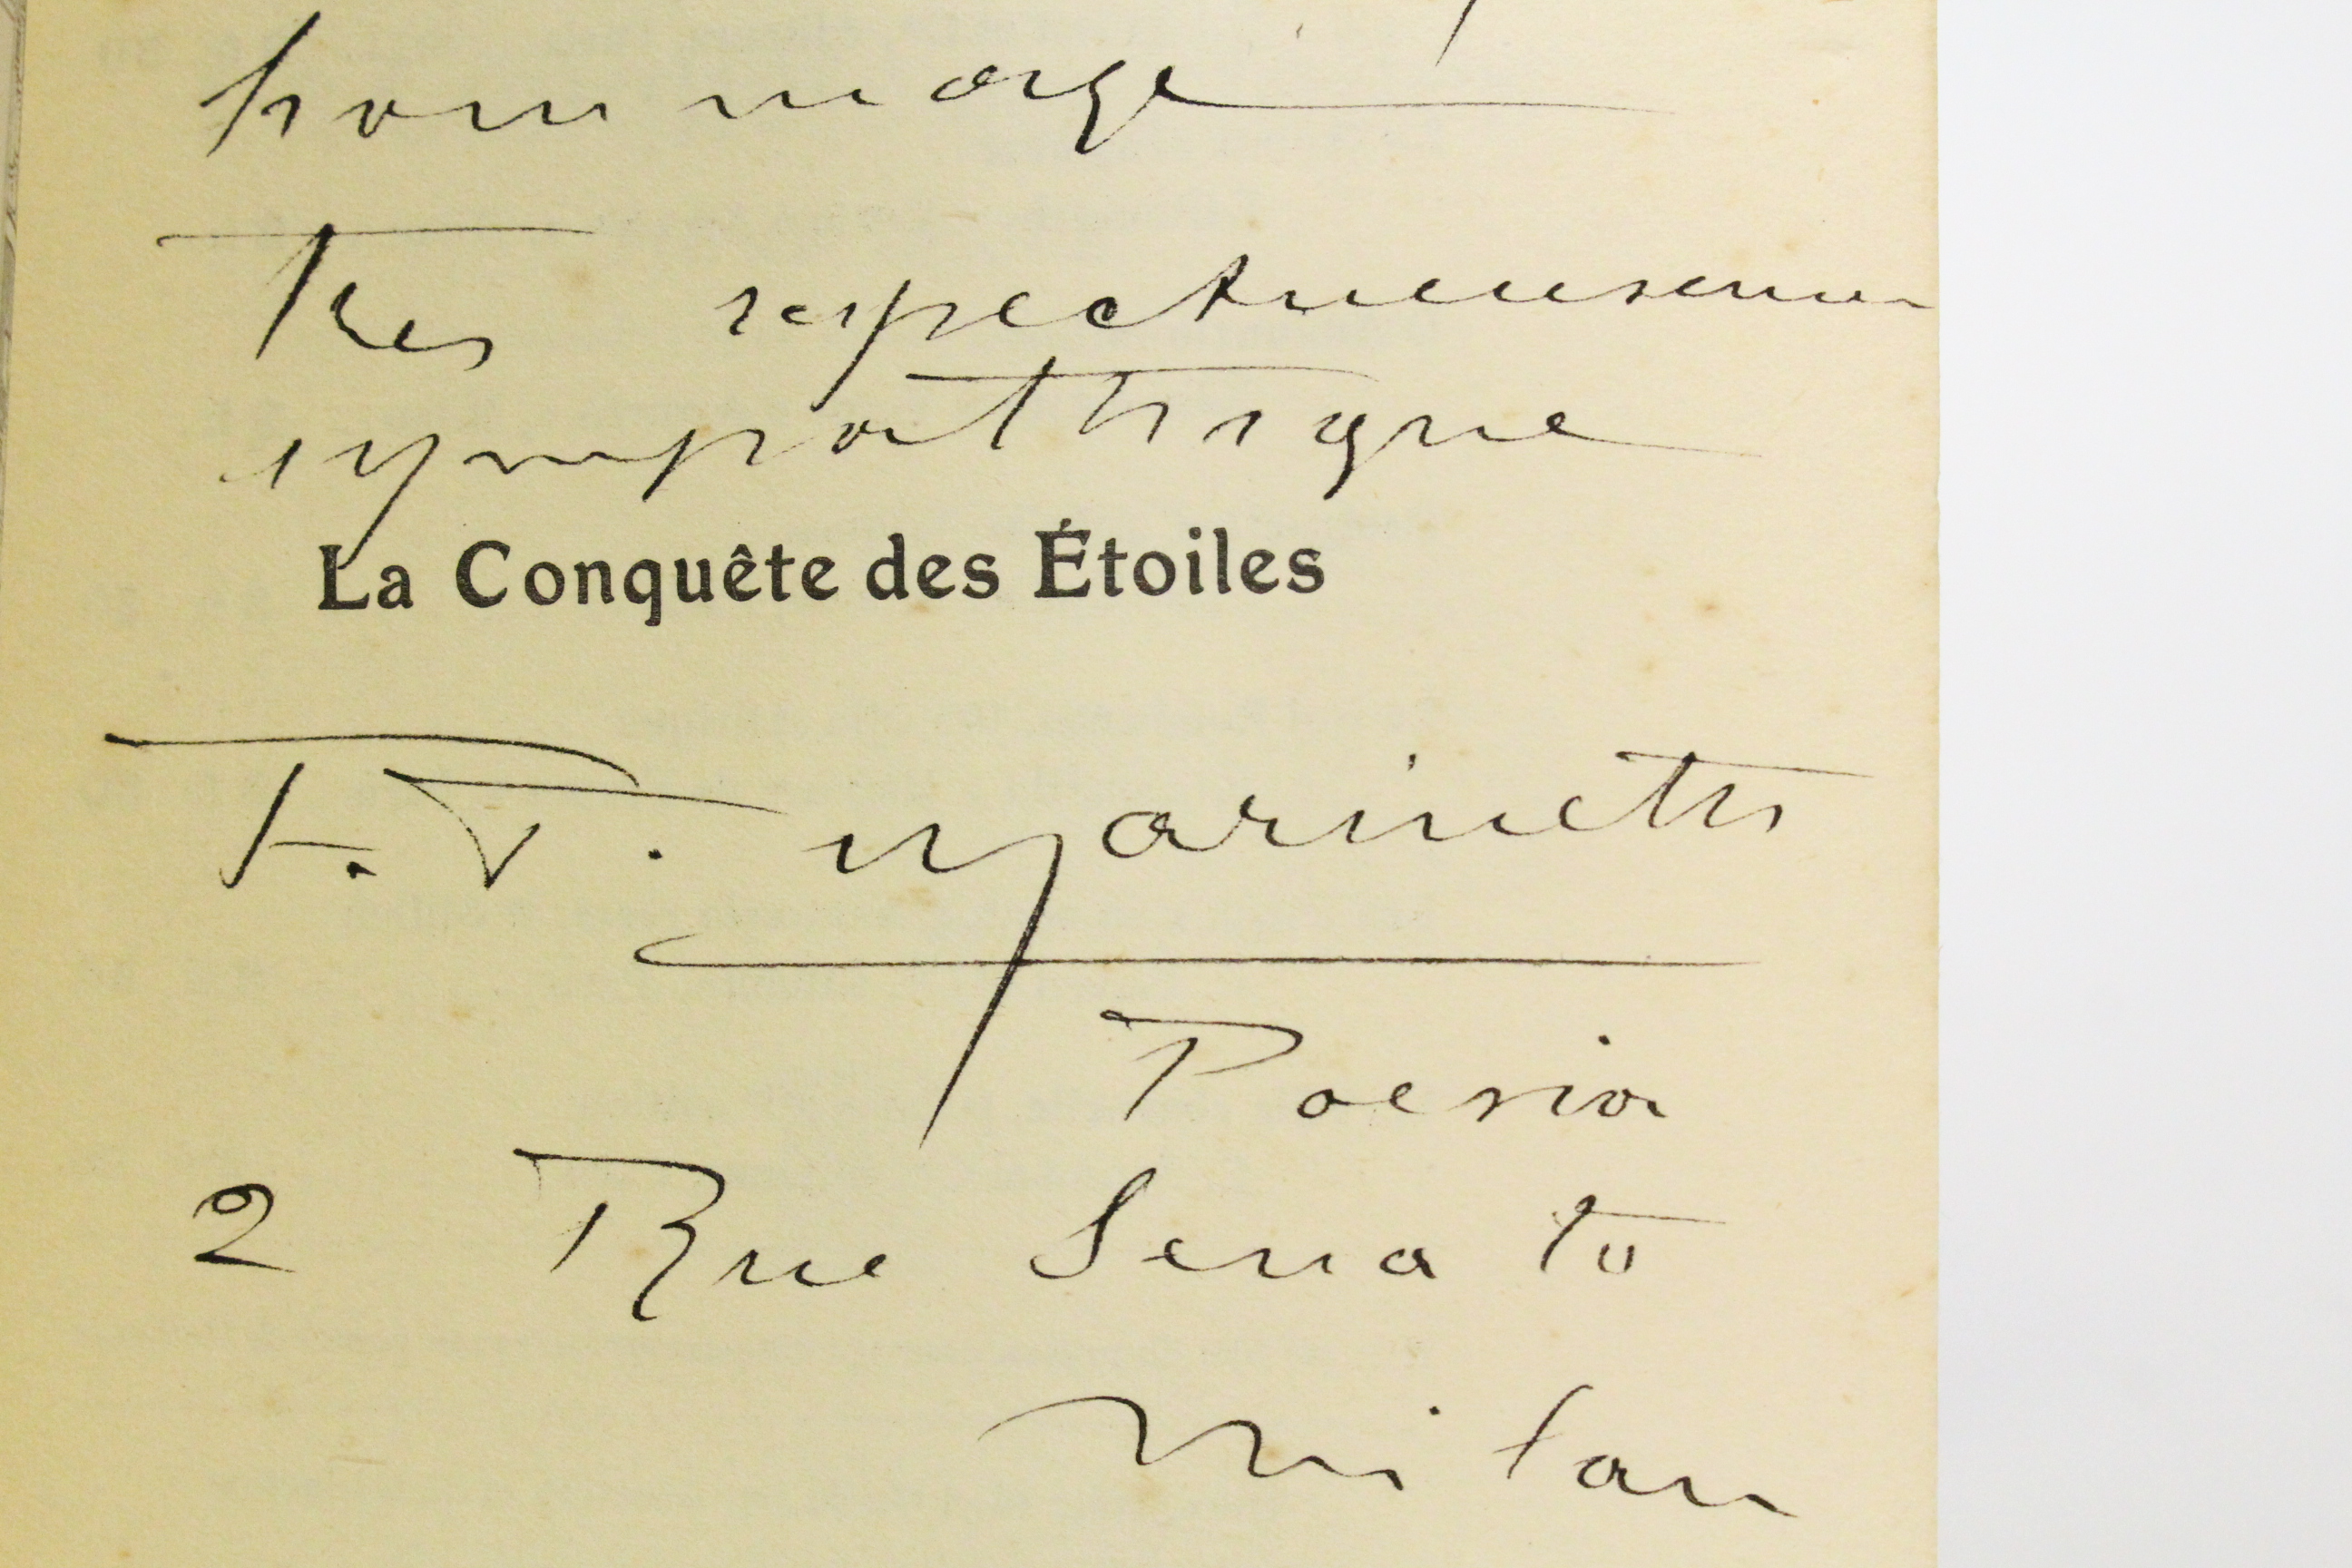 hommage
Tres respectueusemen
sympathique
La Conquête des Étoiles
F. T. Marinetti
Poesia
2 Rue Senato
Milan